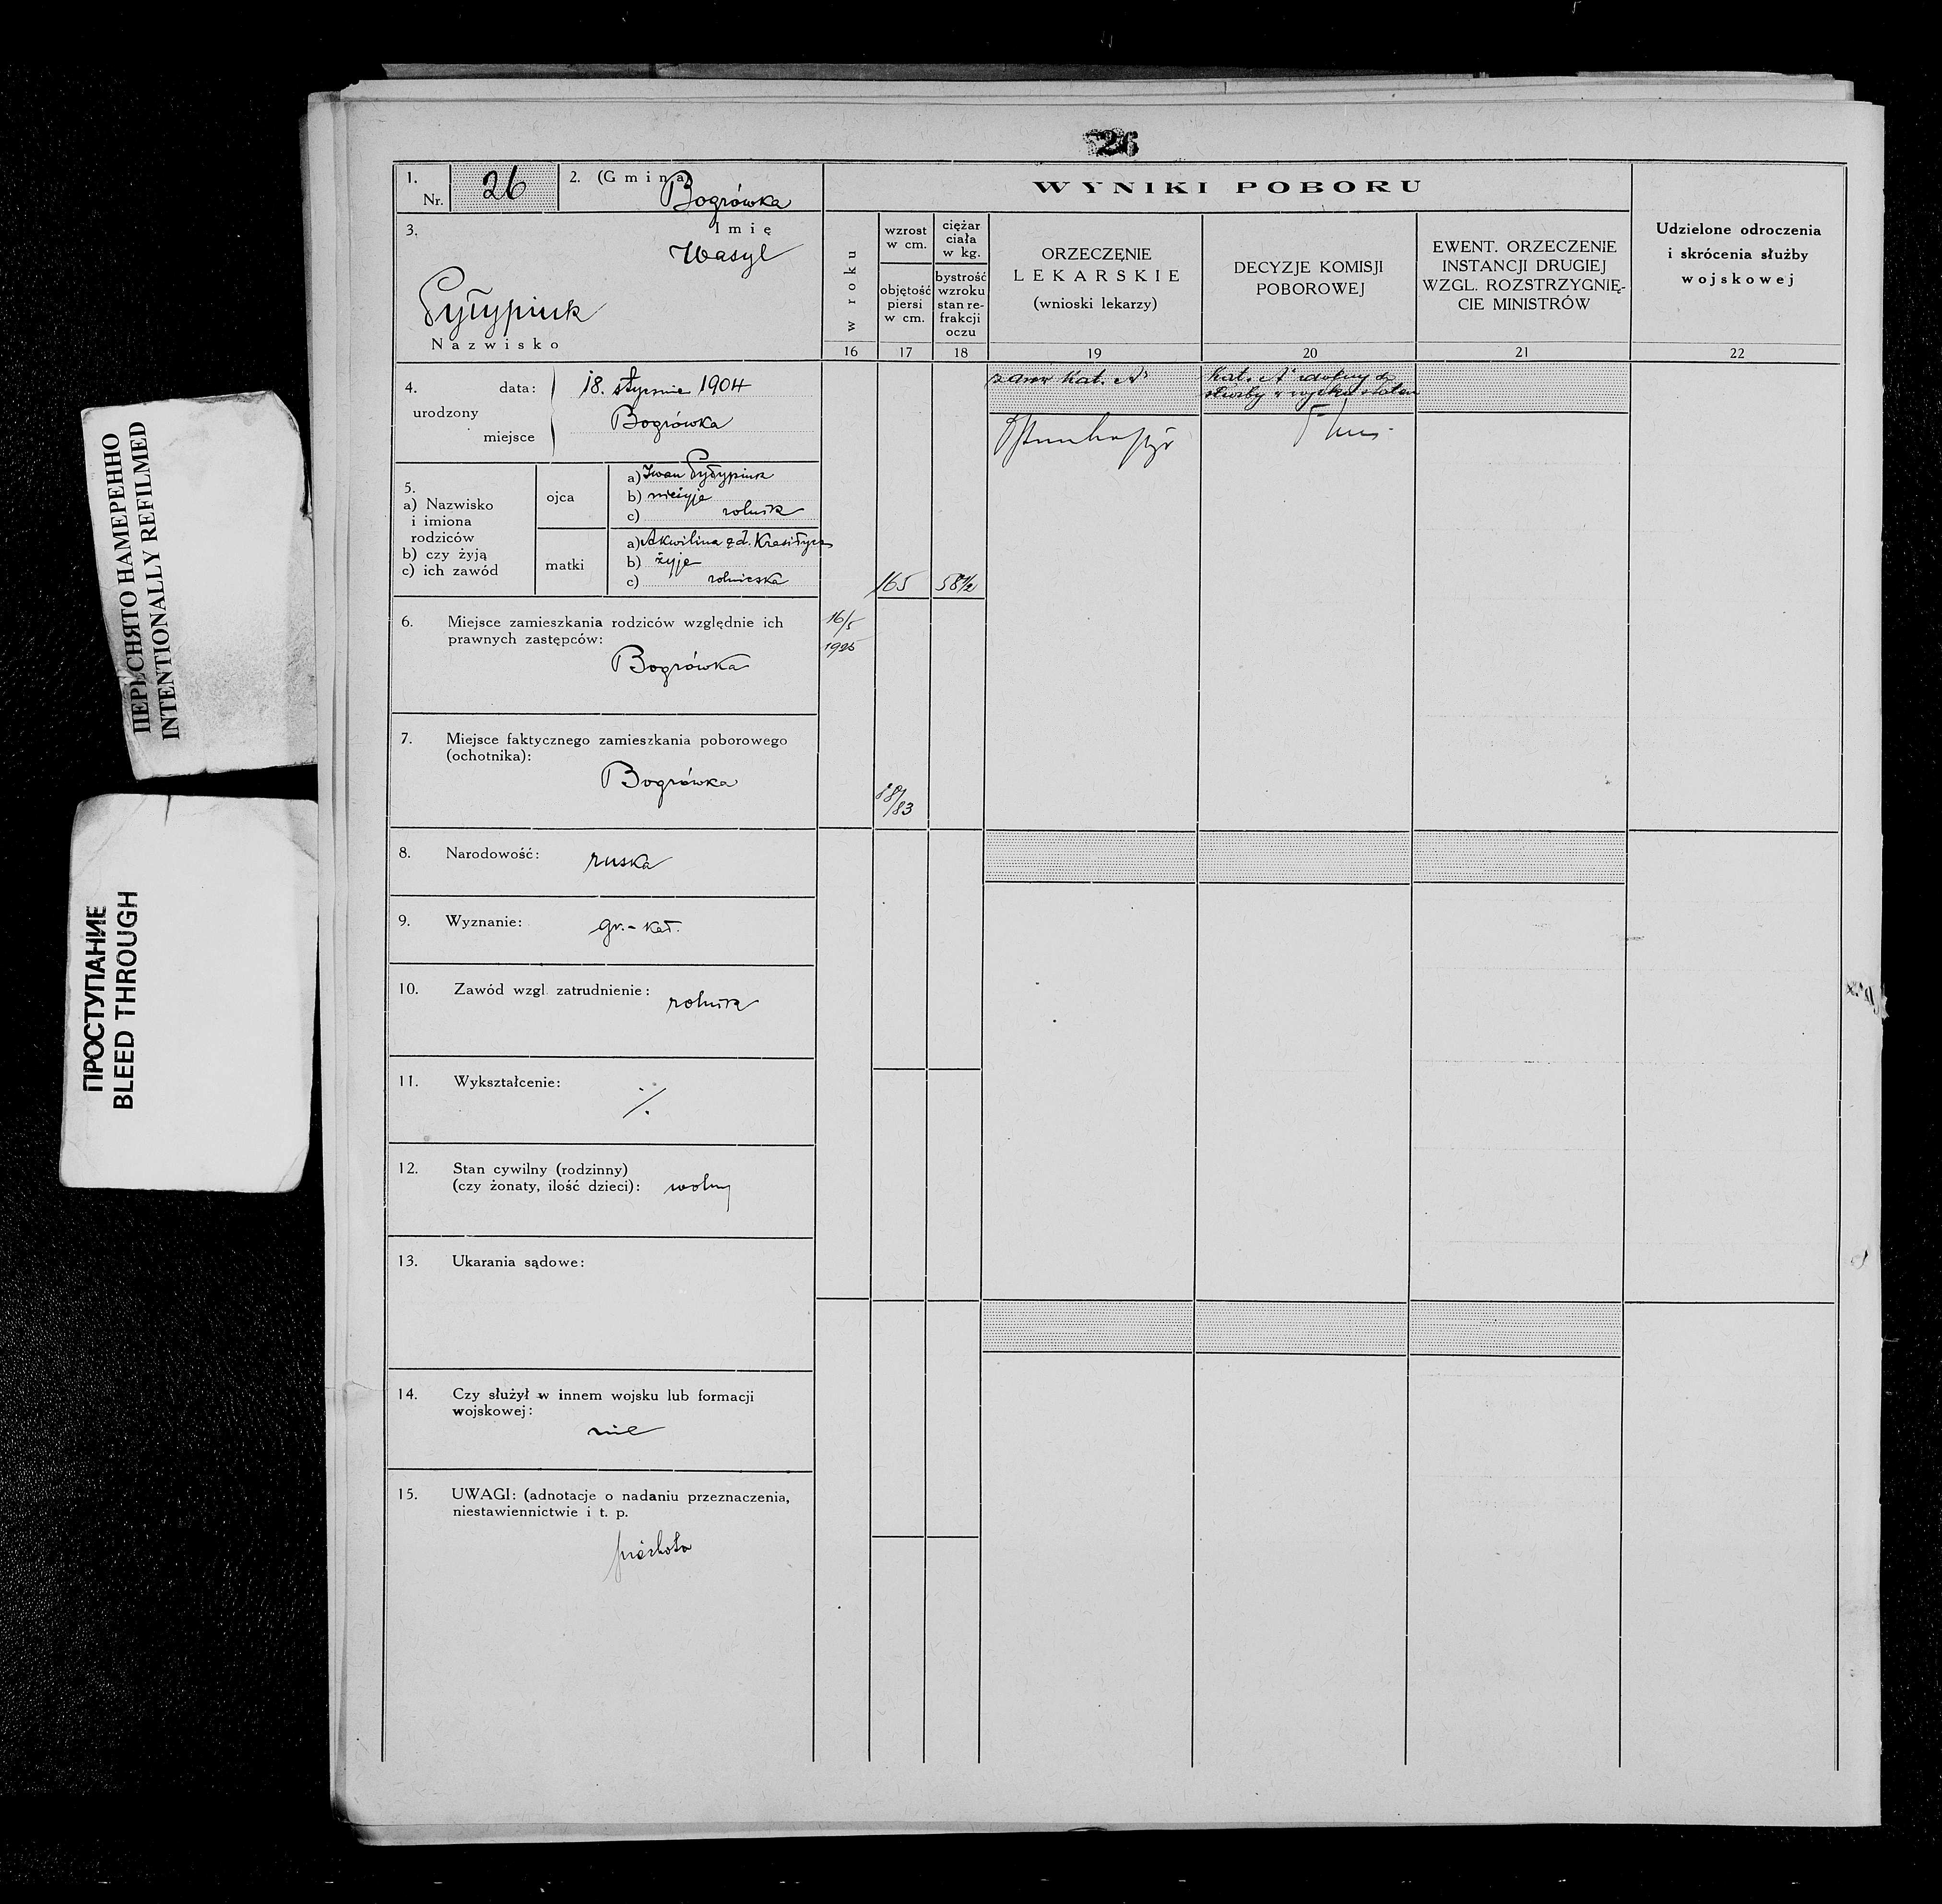 26
1.
Nr. 26
2. (Gmina)
Bogrówka
3.
Imię
Wasyl
Pyłypiuk
Nazwisko
4. urodzony
data: 18. stycznia 1904
miejsce Bogrówka
5.
a) Nazwisko
i imiona
rodziców
b) czy żyją
c) ich zawód
ojca
a) Iwan Pyłypiuk
b) nieżyje
c) rolnik
matki
a) Akwilina
b) żyje
c) rolniczka
6. Miejsce zamieszkania rodziców względnie ich
prawnych zastępców:
Bogrówka
7. Miejsce faktycznego zamieszkania poborowego
(ochotnika):
Bogrówka
8. Narodowość: ruska
9. Wyznanie: gr.-kat.
10. Zawód wzgl. zatrudnienie: rolnik
11. Wykształcenie:
./.
12. Stan cywilny (rodzinny)
(czy żonaty, ilość dzieci): wolny
13. Ukarania sądowe:
14. Czy służył w innem wojsku lub formacji
wojskowej:
nie
15. UWAGI: (adnotacje o nadaniu przeznaczenia,
niestawiennictwie i t. p.
piechota
WYNIKI POBORU
w roku
16
wzrost
w cm.
objętość
piersi
w cm.
17
ciężar
ciała
w kg.
bystrość
wzroku
stan re-
frakcji
oczu
18
ORZECZĘNIE
LEKARSKIE
(wnioski lekarzy)
19
DECYZJE KOMISJI
POBOROWEJ
20
EWENT. ORZECZENIE
INSTANCJI DRUGIEJ
WZGL. ROZSTRZYGNIĘ-
CIE MINISTRÓW
21
Udzielone odroczenia
i skrócenia służby
wojskowej
22
16/5
1925
165
58 1/2
88/83
Kat. A
Kat. A zdolny do
służby w wojsku
ПЕРЕСНЯТО НАМЕРЕННО
INTENTIONALLY REFILMED
ПРОСТУПАНИЕ
BLEED THROUGH